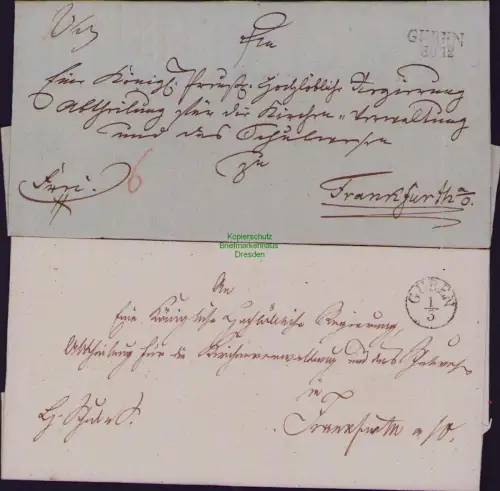 An
GUBEN
30 12
Eine Königl. Preuß. Hochlöbliche Regierung
Abtheilung für die Kirchen-Verwaltung
und das Schulwesen
zu
Frei.
6
Frankfurth a/O.
Kopierschutz
Briefmarkenhaus
Dresden
An
GUBEN
1/3
Eine Königliche Hochlöbliche Regierung,
Abtheilung für die Kirchenverwaltung und das Schulwesen
in
Frankfurth a/O.